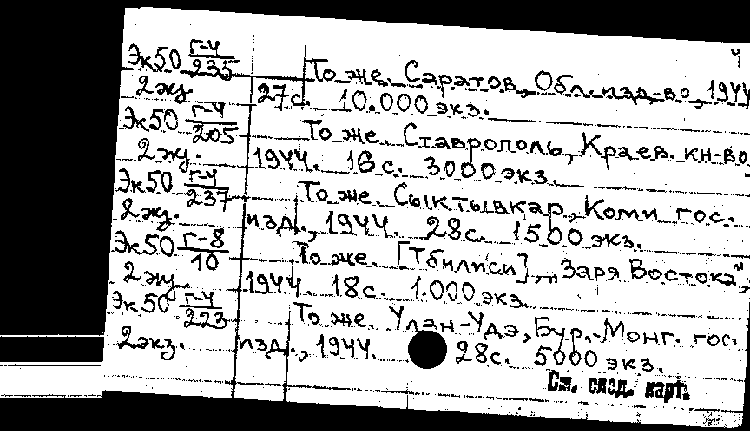 4
Эк50 Г-4/235 То же. Саратов, Обл. изд-во, 1944
2 экз. 27с. 10.000 экз.
Эк50 Г-4/205 То же. Ставрополь, Краев. кн-во
2 экз. 1944. 16с. 3000 экз.
Эк50 Г-4/237 То же. Сыктывкар, Коми гос.
2 экз. изд., 1944. 28с. 1500 экз.
Эк50 Г-8/10 То же. [Тбилиси], „Заря Востока",
2 экз. 1944. 18с. 1.000 экз.
Эк50 Г-4/223 То же. Улан-Удэ, Бур.-Монг. гос.
2 экз. изд., 1944. 28с. 5000 экз.
См. след. карт.